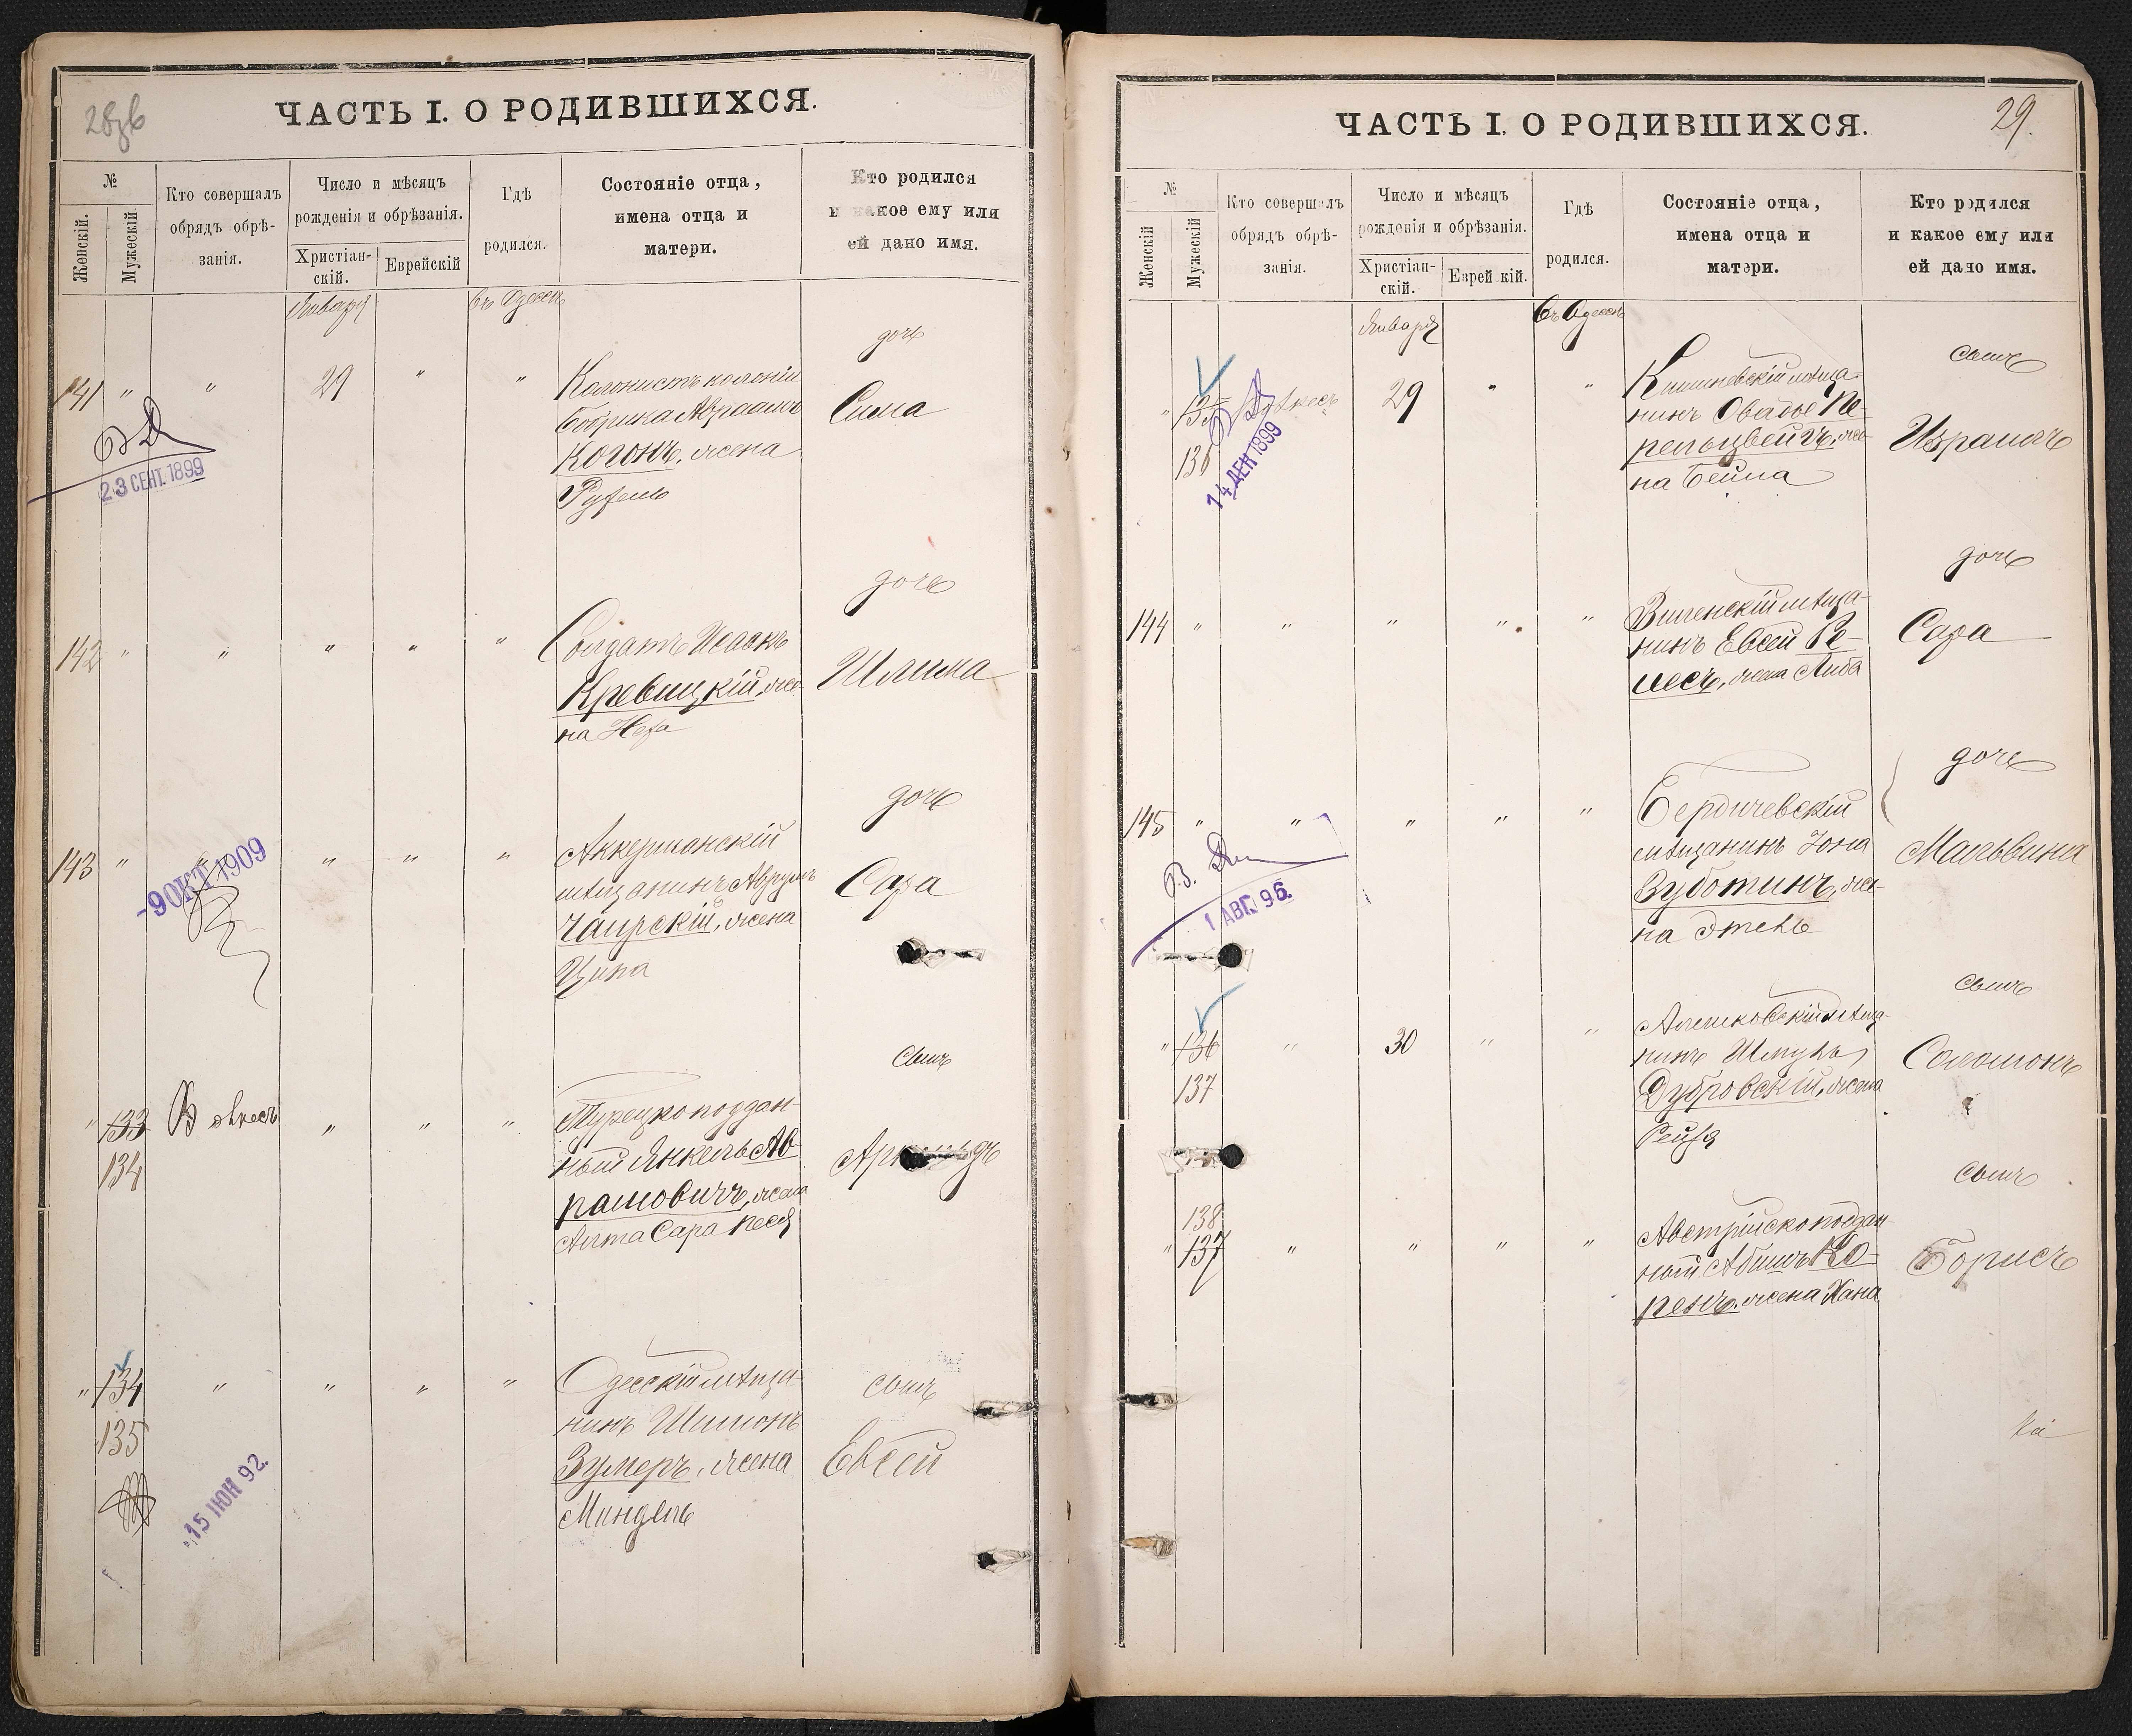 ЧАСТЬ I. О РОДИВШИХСЯ.
№
Женскій.
Мужескій
Кто совершалъ
обрядъ обрѣ-
занія.
Число и мѣсяцъ
рожденія и обрѣзанія.
Христіан-
скій.
Еврейскій
Гдѣ
родился.
Состояніе отца,
имена отца и
матери.
Кто родился
и какое ему или
ей дано имя.
Января
въ Одессѣ
141 " " 29 " "
Колонистъ колоніи
Бобрика Авраамъ
Когонъ, жена
Рухель
дочь
Сима
23 СЕНТ. 1899
142 " " " " "
Солдатъ Исаакъ
Кревицкій, же-
на
дочь
143 " " " "
Аккерманскій
мѣщанинъ Аврумъ
Чаирскій, жена
Ципа
дочь
Сара
-9 ОКТ 1909
" 133
134
" " "
Турецкоподдан-
ный Янкель Аб-
рамовичъ, жена
Алта Сара Песя
сынъ
" 134
135
" " " "
Одесскій мѣща-
нинъ Шимонъ
Зумеръ, жена
Миндель
сынъ
Евсей
15 ІЮН 92.
ЧАСТЬ I. О РОДИВШИХСЯ.
29.
№
Женскій
Мужескій
Кто совершалъ
обрядъ обрѣ-
занія.
Число и мѣсяцъ
рожденія и обрѣзанія.
Христіан-
скій.
Еврейкій.
Гдѣ
родился.
Состояніе отца,
имена отца и
матери.
Кто родился
и какое ему или
ей дано имя.
Января
Въ Одессѣ
" 135
136
29 " "
Кишиневскій мѣща-
нинъ Овадье Пе-
рельцвейгъ, же-
на Бейла
сынъ
Израиль
14 ДЕК 1899
144 " " " " "
Виленскій мѣща-
нинъ Евсей Ре-
месъ, жена Либа
дочь
Сара
145 " " " " "
Бердичевскій
мѣщанинъ Іона
Зуботинъ, же-
на Этель
дочь
Мальвина
1 АВГ. 96.
" 136
137
" 30 " "
Алешковскій мѣща-
нинъ Шмуль
Дубровскій, жена
Рейзя
сынъ
Соломонъ
138
" 137 " " " "
Австрійскоподдан-
ный Абишъ Ко-
ренъ, жена Хана
сынъ
Борисъ